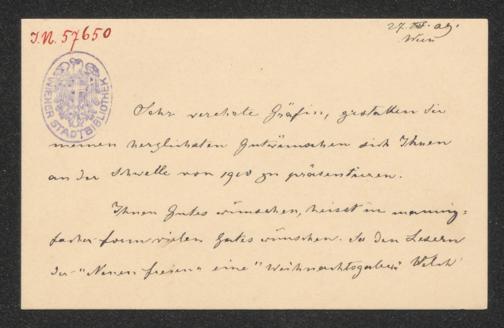 I.N. 57650
27. XII. 09.
Wien
WIENER STADTBIBLIOTHEK
Sehr verehrte Gräfin, gestatten Sie
meinen herzlichsten Gutwünschen sich Ihnen
an der Schwelle von 1910 zu präsentieren.
Ihnen Gutes wünschen, heisst in mannig-
facher Form vielen Gutes wünschen. So den Lesern
der "Neuen freien" eine "Weihnachtsgabe"! Welch